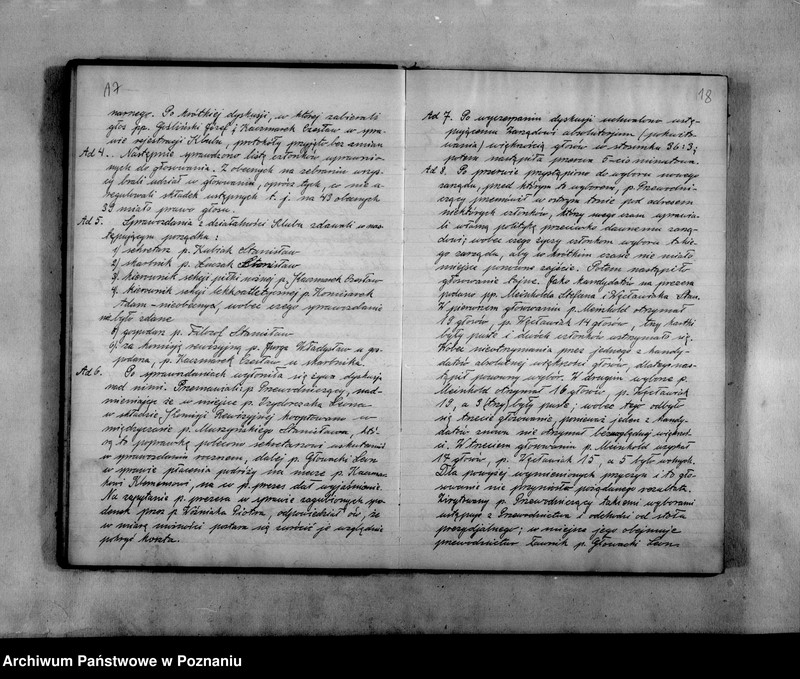 17
narnego. Po krótkiej dyskusji, w której zabierali
głos pp. Gośliński Józef i Kaczmarek Czesław w spra-
wie rejestracji Klubu, protokóły przyjęto bez zmian
Ad 4. Następnie sprawdzono listę członków uprawnio-
nych do głosowania. Z obecnych na zebraniu wszys-
cy brali udział w głosowaniu, oprócz tych, co nie u-
regulowali składek wstępnych t. j. na 43 obecnych
39 miało prawo głosu.
Ad 5. Sprawozdania z działalności Klubu zdawali w nas-
tępującym porządku:
1) sekretarz p. Kubiak Stanisław
2) skarbnik p. Stanisław
3) kierownik sekcji piłki nożnej p. Kaczmarek Czesław
4) kierownik sekcji lekkoatletycznej p. Koniczarek
Adam - nieobecny, wobec czego sprawozdanie
nie było zdane
5) gospodarz p. Filozof Stanisław
6) za komisję rewizyjną p. Władysław u gos-
podarza, p. Kaczmarek Czesław u skarbnika.
Ad 6. Po sprawozdaniach wyłoniła się żywa dyskusja
nad nimi. Przemawiali p. Przewodniczący, nad-
mieniając że w miejsce p. Leona
w składzie Komisji Rewizyjnej kooptowano w
międzyczasie p. Murzyńskiego Stanisława, któ-
rą to poprawkę polecono sekretarzowi uskutecznić
w sprawozdaniu rocznem, dalej p. Głowacki Leon
w sprawie płacenia podróży na mecze p. Kaczmar-
kowi Klemensowi, na co p. prezes dał wyjaśnienie.
Na zapytanie p. prezesa w sprawie zagubionych spo-
denek przez p. Woźniaka Piotra, odpowiedział ów, że
w miarę możności postara się zwrócić je względnie
pokryć koszta.
18
Ad 7. Po wyczerpaniu dyskusji uchwalono ustę-
pującemu Zarządowi absolutorjum (pokwito-
wania) większością głosów w stosunku 36:3;
potem nastąpiła przerwa 5-cio minutowa.
Ad 8. Po przerwie przystąpiono do wyboru nowego
zarządu, przed którym to wyborem, p. Przewodni-
czący przemówił w ostrym tonie pod adresem
niektórych członków, którzy swego czasu uprawia-
li wtórną politykę przeciwko dawnemu zarzą-
dowi; wobec czego życzy członkom wyboru takie-
go zarządu, aby w krótkim czasie nie miało
miejsce ponowne zajście. Potem nastąpiło
głosowanie tajne. Jako kandydatów na prezesa
podano pp. Meinholda Stefana i Wężławiaka Stan.
W pierwszem głosowaniu p. Meinhold otrzymał
19 głosów, p. Wężławiak 14 głosów, trzy kartki
były puste i dwóch członków wstrzymało się.
Wskutek nieotrzymania przez jednego z kandy-
datów absolutnej większości głosów, dlatego nas-
tąpił ponowny wybór. W drugim wyborze p.
Meinhold otrzymał 16 głosów, p. Wężławiak
13, a 3 (trzy) były puste; wobec tego odbyło
się trzecie głosowanie, ponieważ jeden z kandy-
datów znowu nie otrzymał bezwzględnej większoś-
ci. W trzeciem głosowaniu p. Meinhold uzyskał
17 głosów, p. Wężławiak 15, a 5 było wolnych.
Dla powyżej wymienionych przyczyn i to gło-
sowanie nie przyniosło pożądanego rezultatu.
Zirytowany p. Przewodniczący takiemi wyborami
ustąpił z Przewodnictwa i odchodzi od stołu
prezydjalnego; w miejsce jego obejmuje
przewodnictwo ławnik p. Głowacki Leon.
Archiwum Państwowe w Poznaniu